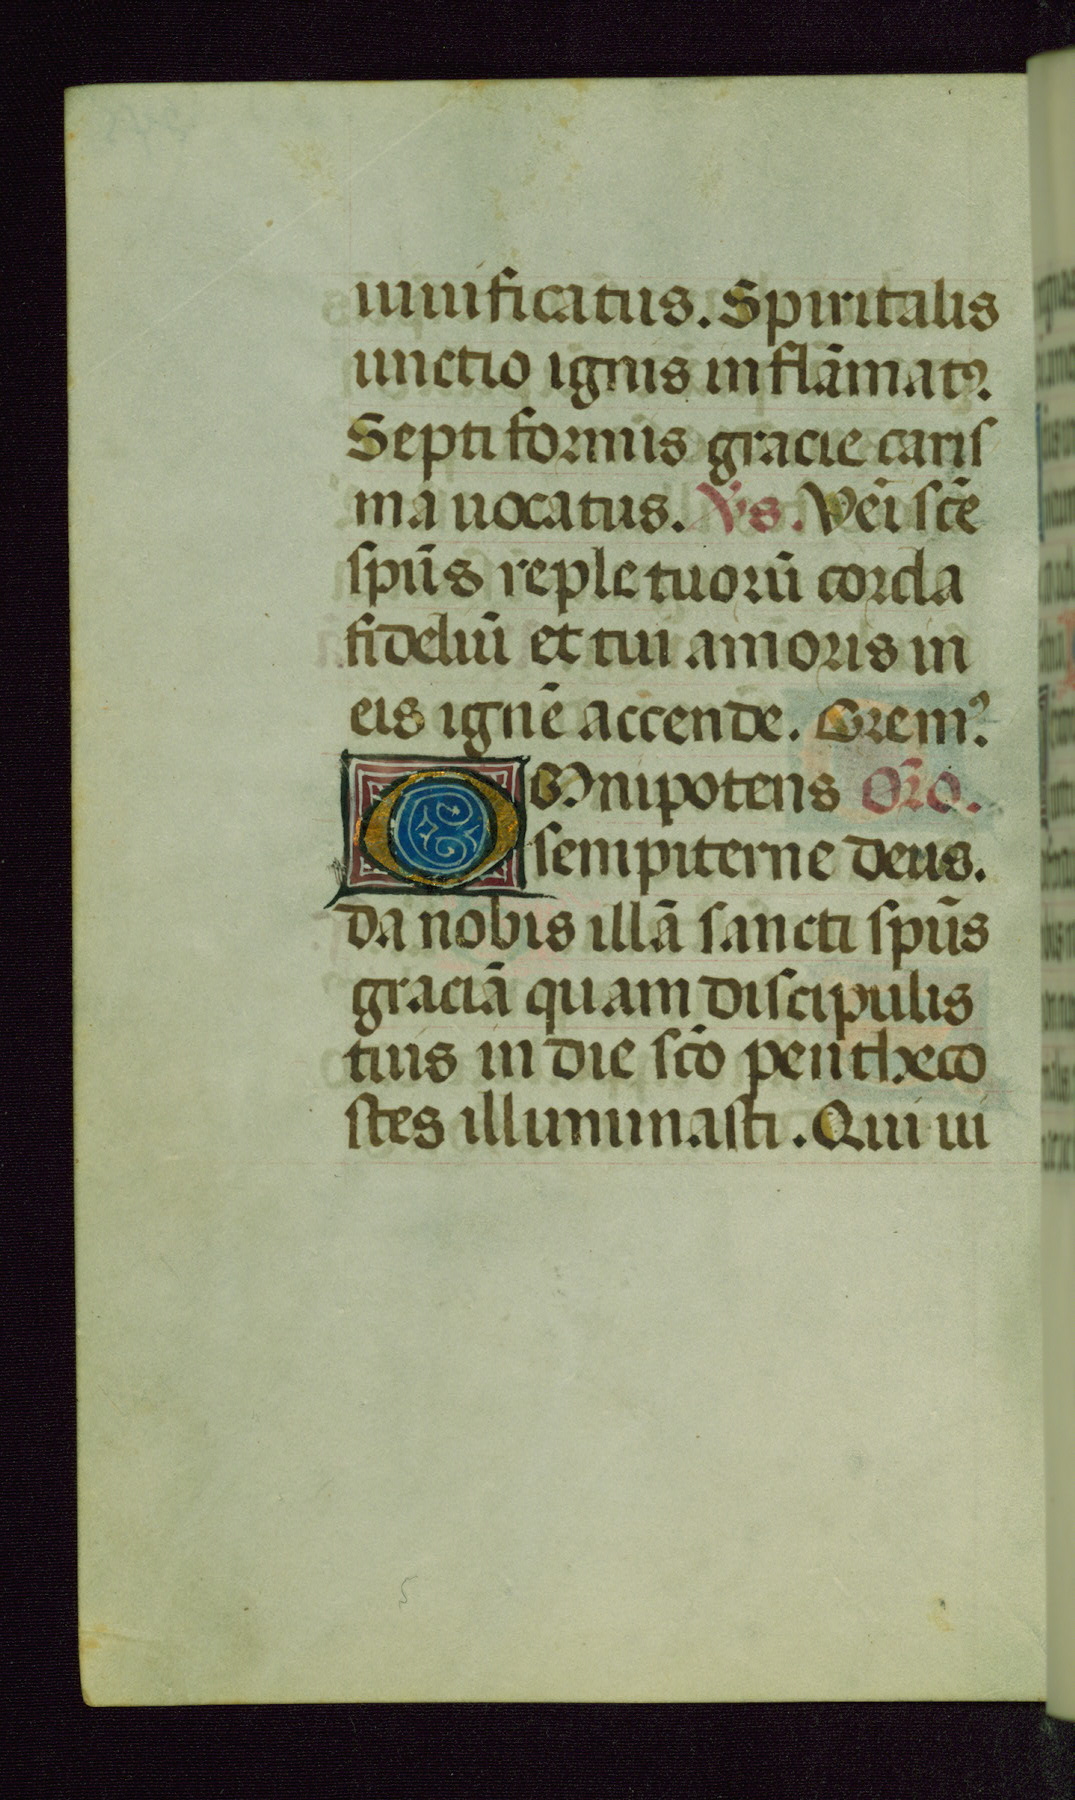 uiuificatus. Spiritalis
unctio ignis inflāmatꝰ.
Septiformis gracie caris
ma uocatus. Vs. Vēi scē
spūs reple tuorū corda
fideliū et tui amoris in
eis ignē accende. Oremꝰ.
OMnipotens Oro.
sempiterne deus.
da nobis illā sancti spūs
graciā quam discipulis
tuis in die scō pentheco
stes illuminasti. Qui ui